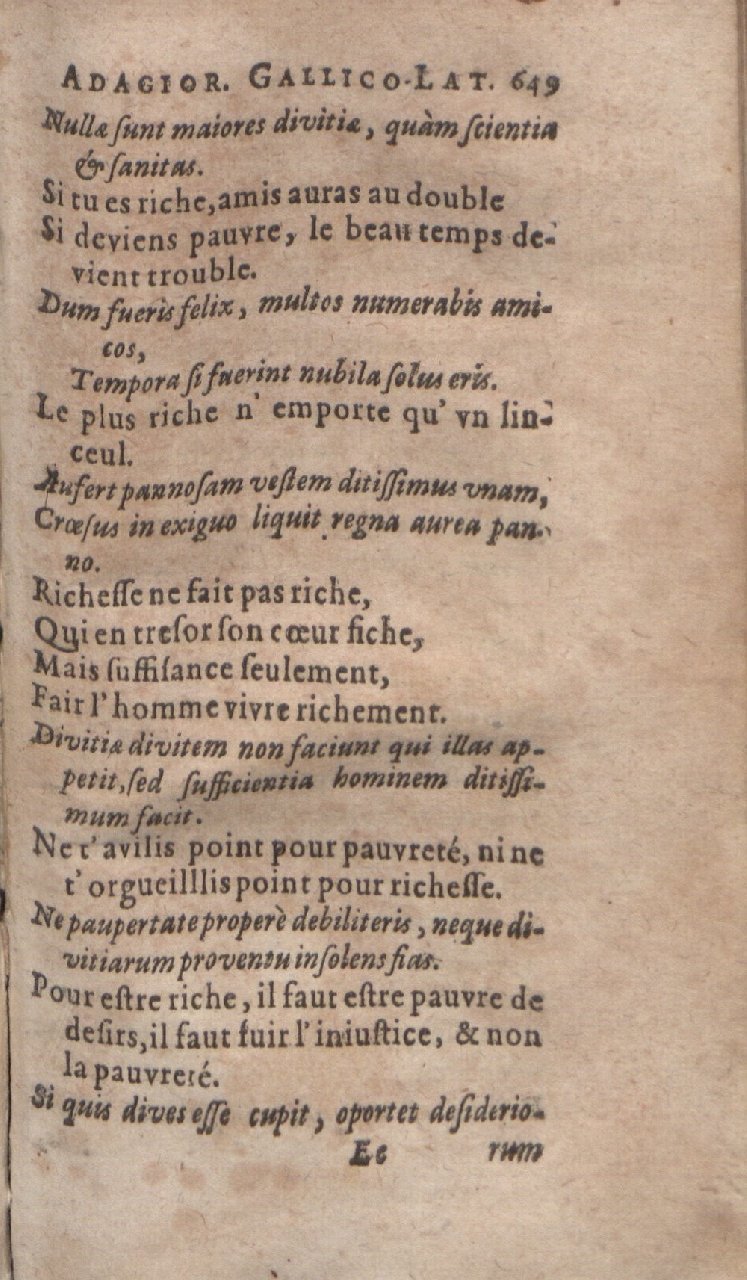 ADAGIOR. GALLICO-LAT. 649
Nullæ ſunt maiores divitiæ, quàm ſcientia
& ſanitas.
Si tu es riche, amis auras au double
Si deviens pauvre, le beau temps de-
vient trouble.
Dum fueris felix, multos numerabis ami-
cos,
Tempora ſi fuerint nubila ſolus eris.
Le plus riche n' emporte qu' vn lin-
ceul.
Aufert pannoſam veſtem ditiſſimus vnam,
Crœſus in exiguo liquit regna aurea pan-
no.
Richeſſe ne fait pas riche,
Qui en treſor ſon cœur fiche,
Mais ſuffiſance ſeulement,
Fair l'homme vivre richement.
Divitiæ divitem non faciunt qui illas ap-
petit, ſed ſufficientia hominem ditiſſi-
mum facit.
Ne t'avilis point pour pauvreté, ni ne
t'orgueilllis point pour richeſſe.
Ne paupertate properè debiliteris, neque di-
vitiarum proventu inſolens fias.
Pour eſtre riche, il faut eſtre pauvre de
deſirs, il faut fuir l'iniuſtice, & non
la pauvreté.
Si quis dives eſſe cupit, oportet deſiderio-
Ee rum